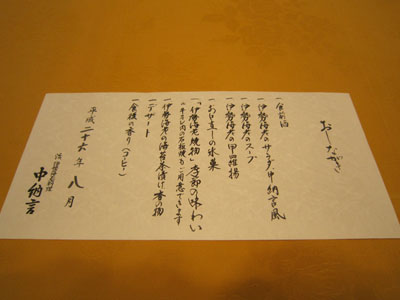 おしながき
一 食前酒
一 伊勢海老のサラダ 中納言風
一 伊勢海老のスープ
一 伊勢海老の甲羅揚
一 お口直しの氷菓
一 「伊勢海老焼物」季節の味わい
一 伊勢海老の海苔茶漬け 香の物
一 デザート
一 食後の香り（コーヒー）
平成二十六年 八月
活伊勢海老料理
中納言